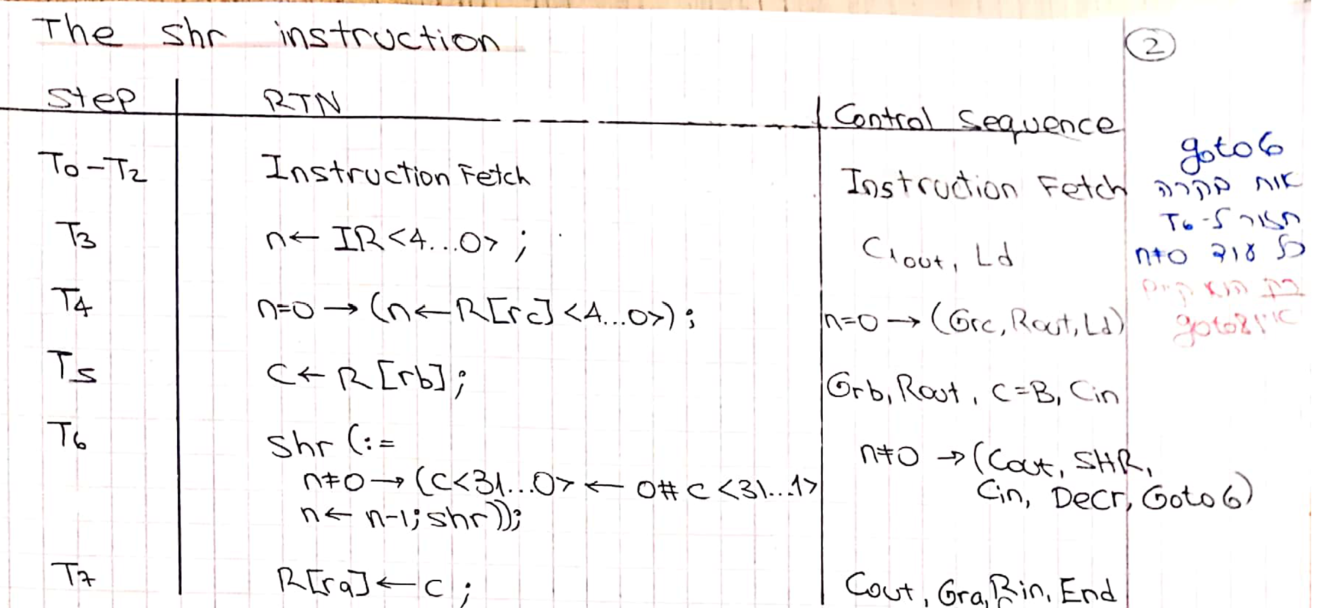 The shr instruction
2
Step RTN Control Sequence
T0-T2 Instruction Fetch Instruction Fetch
T3 n← IR<4...0> ; C1out, Ld
T4 n=0 → (n←R[rc]<4...0>); n=0 → (Grc, Rout, Ld)
T5 C← R[rb]; Grb, Rout, C=B, Cin
T6 Shr (:= n≠0 → (Cout, SHR,
n≠0 → (C<31...0> ← 0# C<31...1> Cin, Decr, Goto6)
n← n-1; shr));
T7 R[ra] ← C ; Cout, Gra, Rin, End
goto6
אות בקרה
חזור ל-T6
כל עוד n≠0
goto8